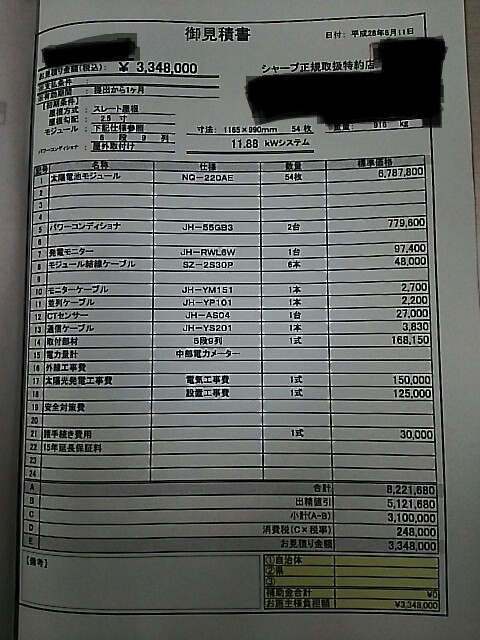 御見積書
日付：平成28年6月11日
お見積り金額(税込)： ¥ 3,348,000
シャープ正規取扱特約店
お支払条件：
有効期限： 提出から1ヶ月
【初期条件】
屋根方式： スレート屋根
屋根勾配： 2.5 寸
モジュール： 下記仕様参照 寸法：1165×990mm 54 枚 重量： 918 kg
6 段 9 列
パワーコンディショナ： 屋外取付け 11.88 kWシステム
名称 仕様 数量 標準価格
1 太陽電池モジュール NQ-220AE 54枚 6,787,800
2
3
4
5 パワーコンディショナ JH-55GB3 2台 779,600
6
7 発電モニター JH-RWL6W 1台 97,400
8 モジュール結線ケーブル SZ-2S30P 6本 48,000
9
10 モニターケーブル JH-YM151 1本 2,700
11 並列ケーブル JH-YP101 1本 2,200
12 CTセンサー JH-AS04 1台 27,000
13 通信ケーブル JH-YS201 1本 3,830
14 取付部材 6段9列 1式 168,150
15 電力量計 中部電力メーター
16 外線工事費
17 太陽光発電工事費 電気工事費 1式 150,000
18 設置工事費 1式 125,000
19 安全対策費
20
21 諸手続き費用 1式 30,000
22 15年延長保証料
23
24
A 合計 8,221,680
B 出精値引 5,121,680
C 小計(A-B) 3,100,000
D 消費税(C×税率) 248,000
E お見積り金額 3,348,000
【備考】
①自治体
②県
③
補助金合計 ¥0
お施主様負担額 ¥3,348,000